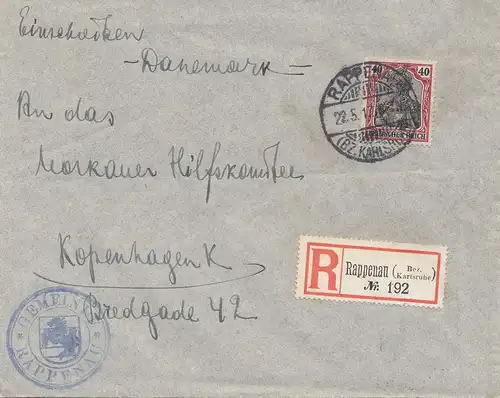 Einschreiben
- Dänemark =
An das
Moskauer Hilfskomitee
Kopenhagen K
Bredgade 42
40 40
DEUTSCHES REICH
RAPPENAU
22.5.17
(BZ. KARLSRUHE)
R Rappenau (Bez. Karlsruhe)
Nr. 192
GEMEINDE
RAPPENAU